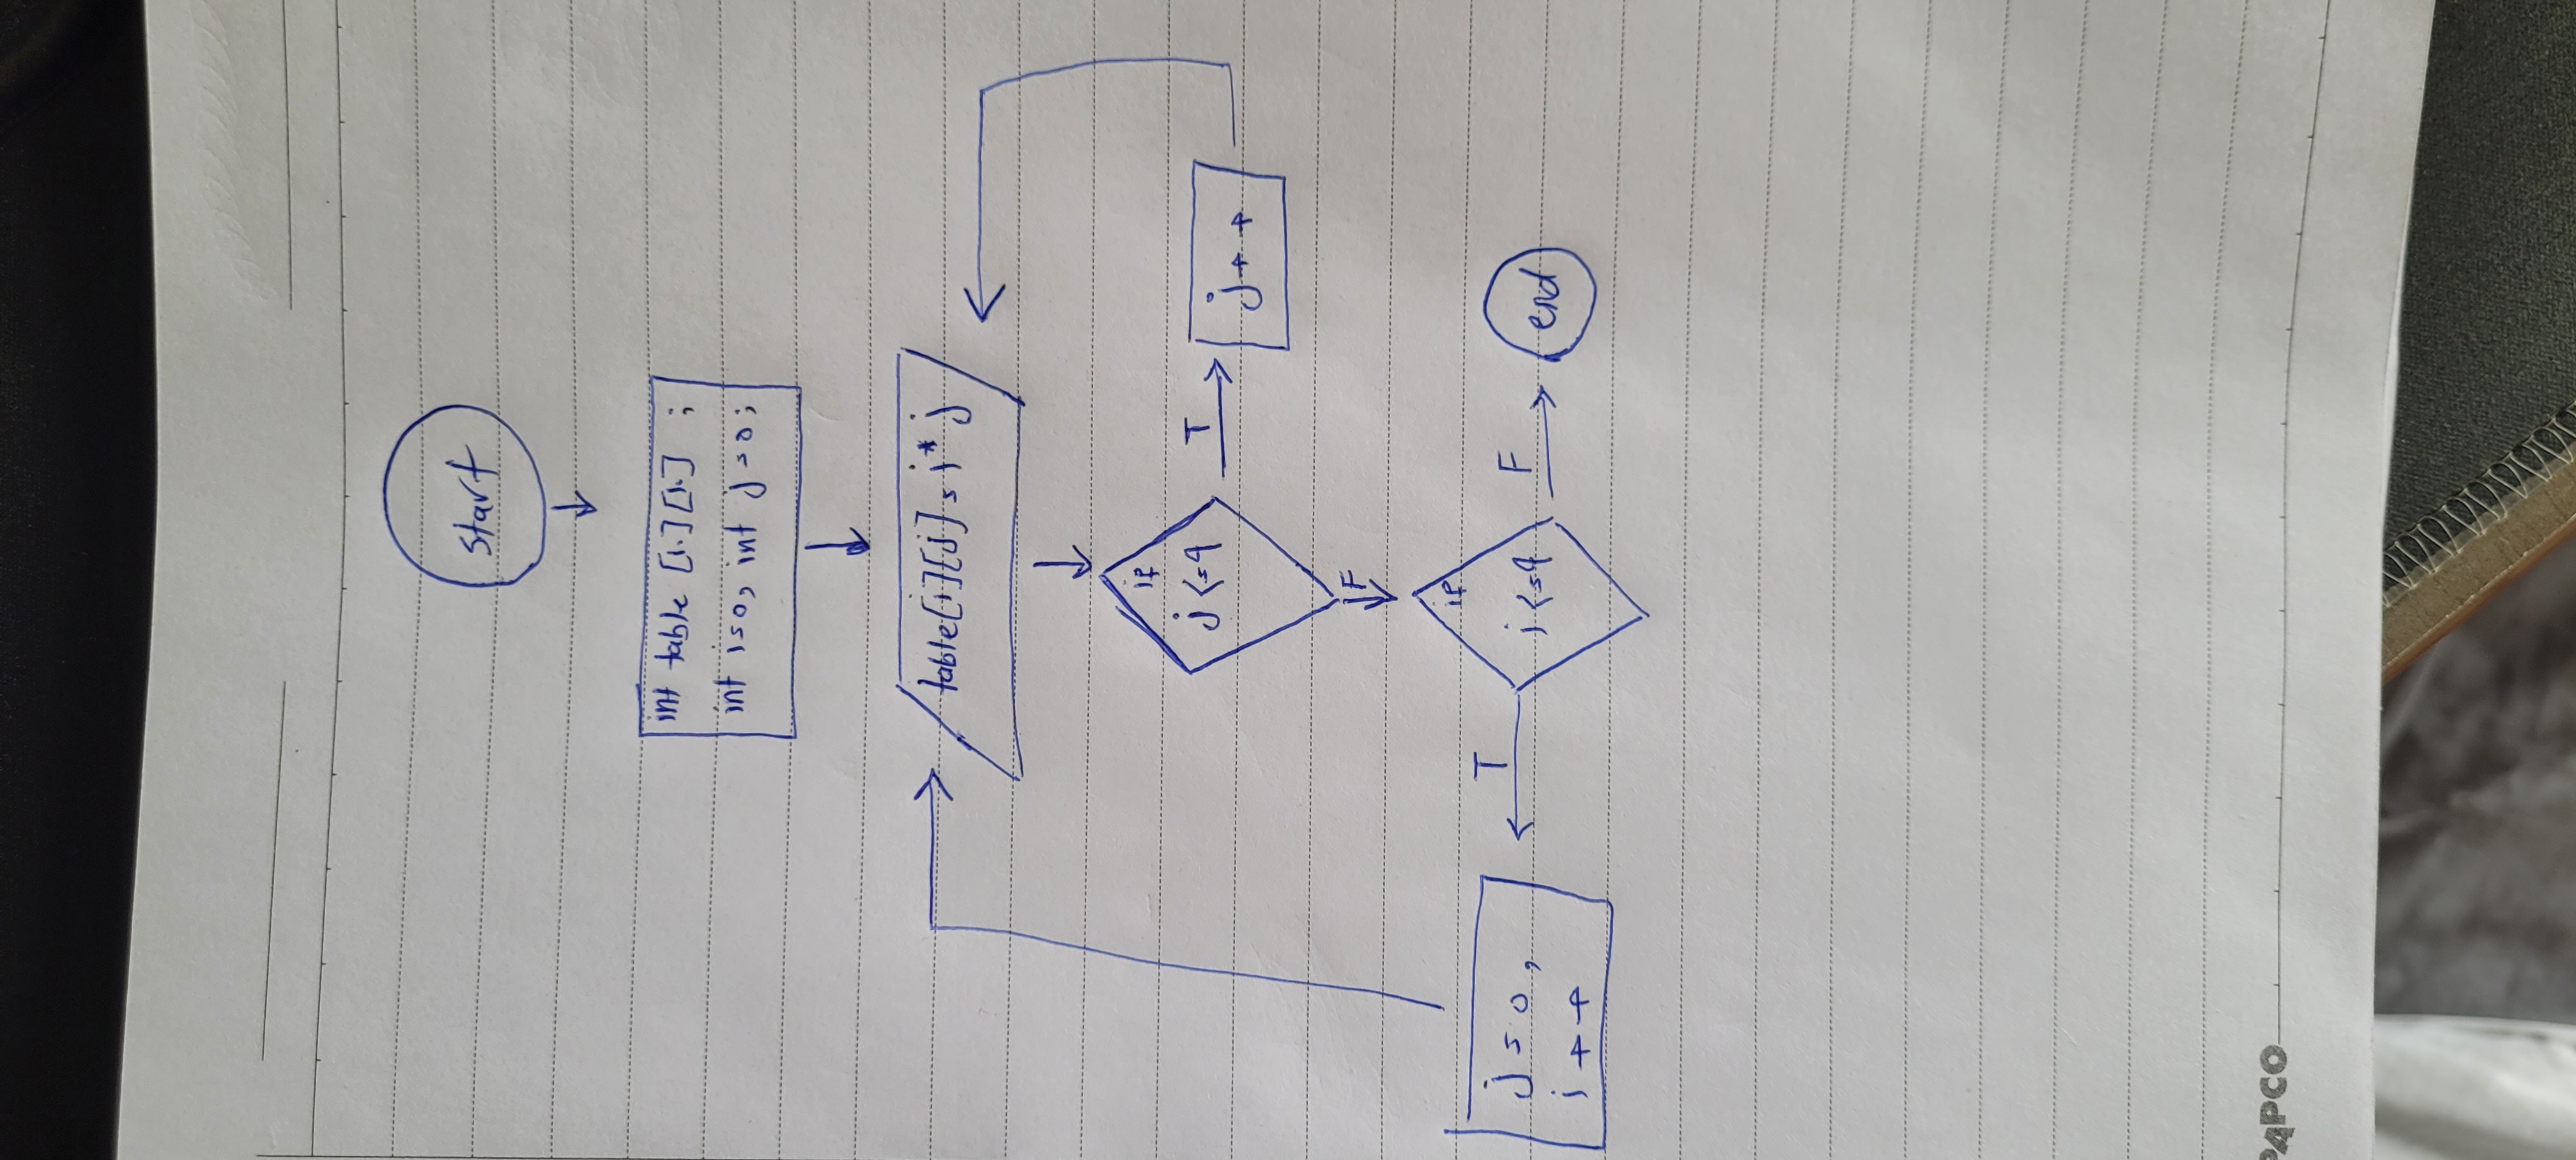 start
int table [1.][1.] ;
int i=0, int j=0;
table[i][j] = i* j
if
j <=9
T
j++
F
if
i <=9
T
F
j=0,
i++
end
PAPCO